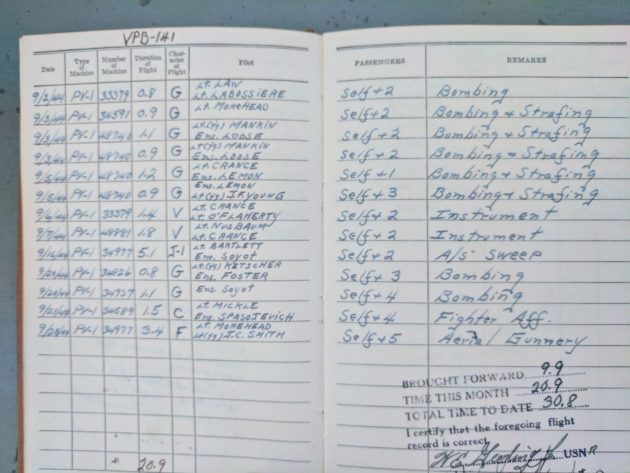 VPB-141
Date Type of Machine Number of Machine Duration of Flight Character of Flight Pilot PASSENGERS REMARKS
9/2/44 PV-1 33379 0.8 G Lt. LAW Lt. LABOSSIERE Self+2 Bombing
9/3/44 PV-1 34591 0.9 G Lt. MOREHEAD Self+2 Bombing + Strafing
9/3/44 PV-1 48740 1.1 G Lt(jg) MANKIN Ens. LOOSE Self+2 Bombing + Strafing
9/3/44 PV-1 48740 0.9 G Lt(jg) MANKIN Ens. LOOSE Self+2 Bombing + Strafing
9/5/44 PV-1 48740 1.2 G Lt. CRANCE Ens. LEMON Self+1 Bombing + Strafing
9/5/44 PV-1 48740 0.9 G Ens. LEMON Lt(jg) J.F. YOUNG Self+3 Bombing + Strafing
9/6/44 PV-1 33379 1.4 V Lt. CRANCE Lt. O'FLAHERTY Self+2 Instrument
9/7/44 PV-1 48881 1.8 V Lt. NUSBAUM Lt. CRANCE Self+2 Instrument
PV-1 34977 5.1 Lt. BARTLETT Ens. Soyot Self+2 A/S- Sweep
PV-1 34626 0.8 G Lt(jg) KETSCHER Ens. FOSTER Self+3 Bombing
PV-1 34937 1.1 G Ens. Soyot Self+4 Bombing
PV-1 34689 1.5 C Lt. MICKLE Ens. SPASOJEVICH Self+4 Fighter Aff.
PV-1 34977 3.4 F Lt. MOREHEAD Lt(jg) J.C. SMITH Self+5 Aerial Gunnery
BROUGHT FORWARD 9.9
TIME THIS MONTH 20.9
TOTAL TIME TO DATE 30.8
I certify that the foregoing flight
record is correct.
USNR
20.9